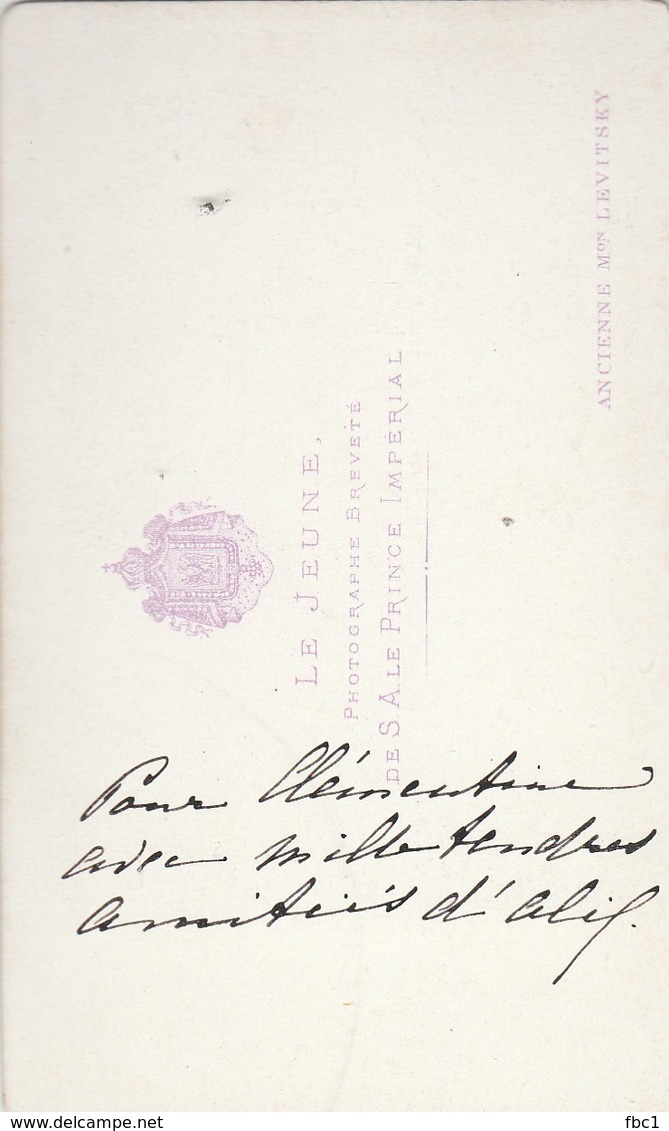 LE JEUNE,
PHOTOGRAPHE BREVETÉ
DE S.A. LE PRINCE IMPÉRIAL
ANCIENNE MON LEVITSKY
Pour Clémentine
avec mille tendres
amitiés d'
www.delcampe.net
fbc1